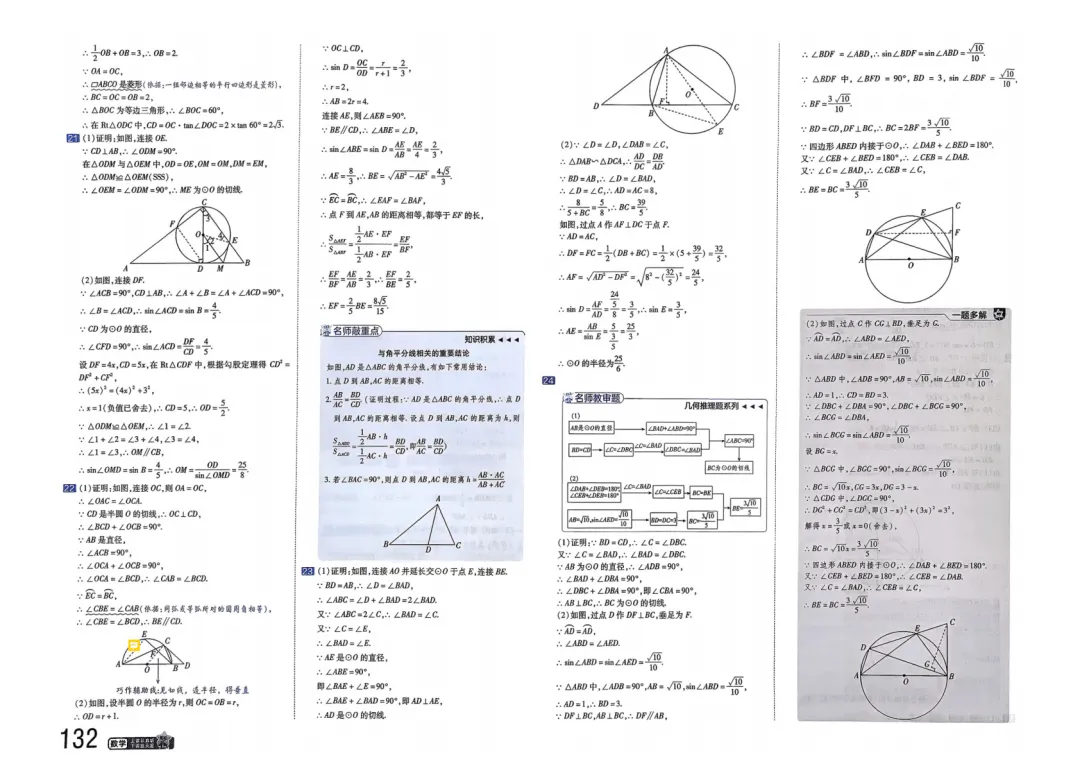 ∴ 1/2 OB + OB = 3, ∴ OB = 2.
∵ OA = OC,
∴ ▱ABCO 是菱形(依据:一组邻边相等的平行四边形是菱形),
∴ BC = OC = OB = 2,
∴ △BOC 为等边三角形, ∴ ∠BOC = 60°,
∴ 在 Rt△ODC 中, CD = OC · tan∠DOC = 2 × tan 60° = 2√3.
21 (1)证明:如图,连接 OE.
∵ CD⊥AB, ∴ ∠ODM = 90°.
在△ODM 与△OEM 中, OD = OE, OM = OM, DM = EM,
∴ △ODM≌△OEM(SSS),
∴ ∠OEM = ∠ODM = 90°, ∴ ME 为⊙O 的切线.
C
F
3
O
2 4 E
1
A D M B
(2)如图,连接 DF.
∵ ∠ACB = 90°, CD⊥AB, ∴ ∠A + ∠B = ∠A + ∠ACD = 90°,
∴ ∠B = ∠ACD, ∴ sin∠ACD = sin B = 4/5.
∵ CD 为⊙O 的直径,
∴ ∠CFD = 90°, ∴ sin∠ACD = DF/CD = 4/5.
设 DF = 4x, CD = 5x, 在 Rt△CDF 中,根据勾股定理得 CD² =
DF² + CF²,
∴ (5x)² = (4x)² + 3²,
∴ x = 1(负值已舍去), ∴ CD = 5, ∴ OD = 5/2.
∵ △ODM≌△OEM, ∴ ∠1 = ∠2.
∵ ∠1 + ∠2 = ∠3 + ∠4, ∠3 = ∠4,
∴ ∠1 = ∠3, ∴ OM∥CB,
∴ sin∠OMD = sin B = 4/5, ∴ OM = OD/sin∠OMD = 25/8.
22 (1)证明:如图,连接 OC,则 OA = OC,
∴ ∠OAC = ∠OCA.
∵ CD 是半圆 O 的切线, ∴ OC⊥CD,
∴ ∠BCD + ∠OCB = 90°.
∵ AB 是直径,
∴ ∠ACB = 90°,
∴ ∠OCA + ∠OCB = 90°,
∴ ∠OCA = ∠BCD, ∴ ∠CAB = ∠BCD.
∵ EC = BC,
∴ ∠CBE = ∠CAB(依据:同弧或等弧所对的圆周角相等),
∴ ∠CBE = ∠BCD, ∴ BE∥CD.
E C
F
A O B D
巧作辅助线:见切线,连半径,得垂直
(2)如图,设半圆 O 的半径为 r,则 OC = OB = r,
∴ OD = r + 1.
132 数学
∵ OC⊥CD,
∴ sin D = OC/OD = r/(r+1) = 2/3,
∴ r = 2,
∴ AB = 2r = 4.
连接 AE,则∠AEB = 90°.
∵ BE∥CD, ∴ ∠ABE = ∠D,
∴ sin∠ABE = sin D = AE/AB = AE/4 = 2/3,
∴ AE = 8/3, ∴ BE = √(AB² − AE²) = 4√5/3.
∵ EC = BC, ∴ ∠EAF = ∠BAF,
∴ 点 F 到 AE,AB 的距离相等,都等于 EF 的长,
∴ S△AEF/S△ABF = (1/2 AE · EF)/(1/2 AB · EF) = EF/BF,
∴ EF/BF = AE/AB = 2/3, ∴ EF/BE = 2/5,
∴ EF = 2/5 BE = 8√5/15.
名师敲重点
知识积累
与角平分线相关的重要结论
如图,AD 是△ABC 的角平分线,有如下常用结论:
1. 点 D 到 AB,AC 的距离相等.
2. AB/AC = BD/CD.(证明过程:∵ AD 是△ABC 的角平分线, ∴ 点 D
到 AB,AC 的距离相等. 设点 D 到 AB,AC 的距离为 h,则
S△ABD/S△ACD = (1/2 AB · h)/(1/2 AC · h) = BD/CD, 即 AB/AC = BD/CD)
3. 若∠BAC = 90°,则点 D 到 AB,AC 的距离 h = AB · AC/(AB + AC)
A
B D C
23 (1)证明:如图,连接 AO 并延长交⊙O 于点 E,连接 BE.
∵ BD = AB, ∴ ∠D = ∠BAD,
∴ ∠ABC = ∠D + ∠BAD = 2∠BAD.
又∵ ∠ABC = 2∠C, ∴ ∠BAD = ∠C.
又∵ ∠C = ∠E,
∴ ∠BAD = ∠E.
∵ AE 是⊙O 的直径,
∴ ∠ABE = 90°,
即∠BAE + ∠E = 90°,
∴ ∠BAE + ∠BAD = 90°,即 AD⊥AE,
∴ AD 是⊙O 的切线.
A
O
D F C
B
E
(2)∵ ∠D = ∠D, ∠DAB = ∠C,
∴ △DAB∽△DCA, ∴ AD/DC = DB/AD.
∵ BD = AB, ∴ ∠D = ∠BAD,
∴ ∠D = ∠C, ∴ AD = AC = 8,
∴ 8/(5+BC) = 5/8, ∴ BC = 39/5.
如图,过点 A 作 AF⊥DC 于点 F.
∵ AD = AC,
∴ DF = FC = 1/2 (DB + BC) = 1/2 × (5 + 39/5) = 32/5,
∴ AF = √(AD² − DF²) = √(8² − (32/5)²) = 24/5,
∴ sin D = AF/AD = (24/5)/8 = 3/5, ∴ sin E = 3/5,
∴ AE = AB/sin E = 5/(3/5) = 25/3,
∴ ⊙O 的半径为 25/6.
24
名师教审题
几何推理题系列
(1)
AB是⊙O的直径 ∠BAD+∠ABD=90°
BD=CD ∠C=∠DBC ∠C=∠BAD ∠BAD=∠DBC ∠ABC=90°
BC为⊙O的切线
(2)
∠DAB+∠DEB=180° ∠CEB+∠DEB=180° ∠C=∠BAD ∠C=∠CEB BC=BE
AB=√10,sin∠AED=√10/10 BD=DC=3 BC=3√10/5 BE=3√10/5
(1)证明:∵ BD = CD, ∴ ∠C = ∠DBC.
又∵ ∠C = ∠BAD, ∴ ∠BAD = ∠DBC.
∵ AB 为⊙O 的直径, ∴ ∠ADB = 90°,
∴ ∠BAD + ∠DBA = 90°,
∴ ∠DBC + ∠DBA = 90°,即∠CBA = 90°,
∴ AB⊥BC, ∴ BC 为⊙O 的切线.
(2)如图,过点 D 作 DF⊥BC,垂足为 F.
∵ AD = AD,
∴ ∠ABD = ∠AED.
∴ sin∠ABD = sin∠AED = √10/10.
∵ △ABD 中, ∠ADB = 90°, AB = √10, sin∠ABD = √10/10,
∴ AD = 1, ∴ BD = 3.
∵ DF⊥BC, AB⊥BC, ∴ DF∥AB,
∴ ∠BDF = ∠ABD, ∴ sin∠BDF = sin∠ABD = √10/10.
∵ △BDF 中, ∠BFD = 90°, BD = 3, sin∠BDF = √10/10,
∴ BF = 3√10/10.
∵ BD = CD, DF⊥BC, ∴ BC = 2BF = 3√10/5.
∵ 四边形 ABED 内接于⊙O, ∴ ∠DAB + ∠BED = 180°.
又∵ ∠CEB + ∠BED = 180°, ∴ ∠CEB = ∠DAB.
又∵ ∠C = ∠BAD, ∴ ∠CEB = ∠C,
∴ BE = BC = 3√10/5.
C
E
D F
A O B
一题多解
(2)如图,过点 C 作 CG⊥BD,垂足为 G.
∵ AD = AD, ∴ ∠ABD = ∠AED,
∴ sin∠ABD = sin∠AED = √10/10.
∵ △ABD 中, ∠ADB = 90°, AB = √10, sin∠ABD = √10/10,
∴ AD = 1, ∴ CD = BD = 3.
∵ ∠DBC + ∠DBA = 90°, ∠DBC + ∠BCG = 90°,
∴ ∠BCG = ∠DBA,
∴ sin∠BCG = sin∠ABD = √10/10.
设 BG = x.
∵ △BCG 中, ∠BGC = 90°, sin∠BCG = √10/10,
∴ BC = √10x, CG = 3x, DG = 3 − x.
∵ △CDG 中, ∠DGC = 90°,
∴ DG² + CG² = CD²,即 (3 − x)² + (3x)² = 3²,
解得 x = 3/5 或 x = 0(舍去),
∴ BC = √10x = 3√10/5.
∵ 四边形 ABED 内接于⊙O, ∴ ∠DAB + ∠BED = 180°.
又∵ ∠CEB + ∠BED = 180°, ∴ ∠CEB = ∠DAB.
又∵ ∠C = ∠BAD, ∴ ∠CEB = ∠C,
∴ BE = BC = 3√10/5.
C
E
D
G
A O B